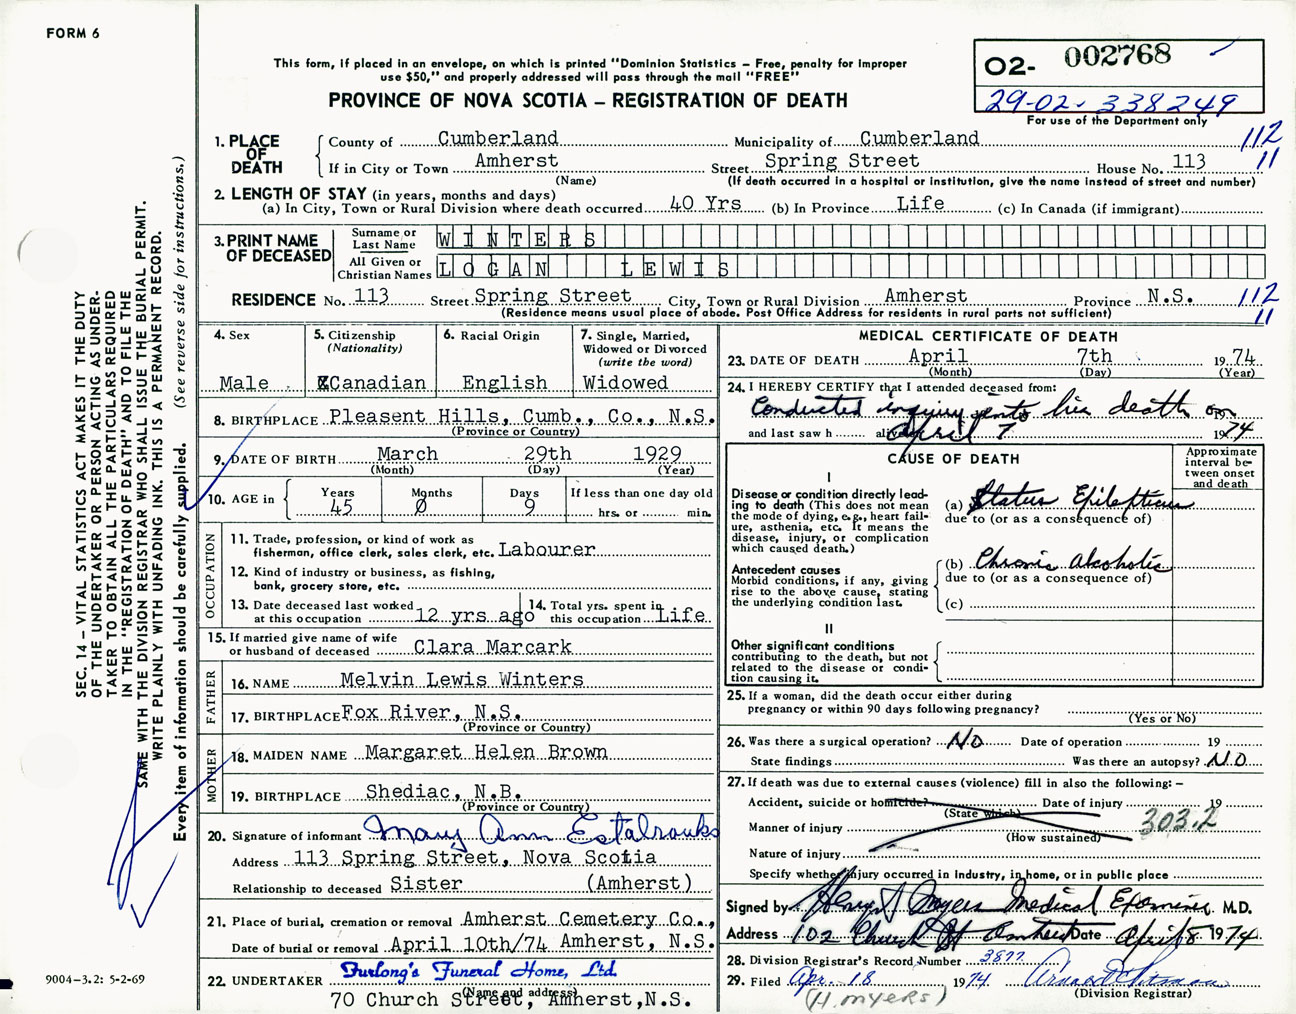 FORM 6
This form, if placed in an envelope, on which is printed "Dominion Statistics – Free, penalty for improper
use $50," and properly addressed will pass through the mail "FREE"
PROVINCE OF NOVA SCOTIA – REGISTRATION OF DEATH
02- 002768
29-02- 338249
For use of the Department only
1. PLACE OF DEATH
County of Cumberland Municipality of Cumberland 112
If in City or Town Amherst Street Spring Street House No. 113 11
(Name) (If death occurred in a hospital or institution, give the name instead of street and number)
2. LENGTH OF STAY (in years, months and days)
(a) In City, Town or Rural Division where death occurred 40 Yrs (b) In Province Life (c) In Canada (if immigrant)
3. PRINT NAME OF DECEASED
Surname or Last Name WINTERS
All Given or Christian Names LOGAN LEWIS
RESIDENCE No. 113 Street Spring Street City, Town or Rural Division Amherst Province N.S. 112
(Residence means usual place of abode. Post Office Address for residents in rural parts not sufficient) 11
4. Sex
Male
5. Citizenship
(Nationality)
Canadian
6. Racial Origin
English
7. Single, Married,
Widowed or Divorced
(write the word)
Widowed
8. BIRTHPLACE Pleasent Hills, Cumb., Co., N.S.
(Province or Country)
9. DATE OF BIRTH March 29th 1929
(Month) (Day) (Year)
10. AGE in
Years Months Days If less than one day old
45 0 9 hrs. or min.
OCCUPATION
11. Trade, profession, or kind of work as
fisherman, office clerk, sales clerk, etc. Labourer
12. Kind of industry or business, as fishing,
bank, grocery store, etc.
13. Date deceased last worked
at this occupation 12 yrs ago
14. Total yrs. spent in
this occupation Life
15. If married give name of wife
or husband of deceased Clara Marcark
FATHER
16. NAME Melvin Lewis Winters
17. BIRTHPLACE Fox River, N.S.
(Province or Country)
MOTHER
18. MAIDEN NAME Margaret Helen Brown
19. BIRTHPLACE Shediac, N.B.
(Province or Country)
20. Signature of informant Mary Ann Estabrooks
Address 113 Spring Street, Nova Scotia
Relationship to deceased Sister (Amherst)
21. Place of burial, cremation or removal Amherst Cemetery Co.,
Date of burial or removal April 10th/74 Amherst, N.S.
22. UNDERTAKER Furlong's Funeral Home, Ltd.
(Name and address)
70 Church Street, Amherst, N.S.
MEDICAL CERTIFICATE OF DEATH
23. DATE OF DEATH April 7th 1974
(Month) (Day) (Year)
24. I HEREBY CERTIFY that I attended deceased from:
Conducted inquiry into his death on 19
and last saw h alive April 7 1974
CAUSE OF DEATH
Approximate
interval be-
tween onset
and death
I
Disease or condition directly lead-
ing to death (This does not mean
the mode of dying, e.g., heart fail-
ure, asthenia, etc. It means the
disease, injury, or complication
which caused death.)
(a) Status Epilepticus
due to (or as a consequence of)
Antecedent causes
Morbid conditions, if any, giving
rise to the above cause, stating
the underlying condition last.
(b) Chronic Alcoholic
due to (or as a consequence of)
(c)
II
Other significant conditions
contributing to the death, but not
related to the disease or condi-
tion causing it.
25. If a woman, did the death occur either during
pregnancy or within 90 days following pregnancy?
(Yes or No)
26. Was there a surgical operation? NO Date of operation 19
State findings Was there an autopsy? NO
27. If death was due to external causes (violence) fill in also the following: –
Accident, suicide or homicide? Date of injury 19
(State which)
Manner of injury 303.2
(How sustained)
Nature of injury
Specify whether injury occurred in industry, in home, or in public place
Signed by Henry J Myers Medical Examiner M.D.
Address 102 Church St Amherst Date April 8 1974
28. Division Registrar's Record Number 3877
29. Filed Apr. 18 1974
(H. MYERS) (Division Registrar)
SEC. 14 – VITAL STATISTICS ACT MAKES IT THE DUTY
OF THE UNDERTAKER OR PERSON ACTING AS UNDER-
TAKER TO OBTAIN ALL THE PARTICULARS REQUIRED
IN THE "REGISTRATION OF DEATH" AND TO FILE THE
SAME WITH THE DIVISION REGISTRAR WHO SHALL ISSUE THE BURIAL PERMIT.
WRITE PLAINLY WITH UNFADING INK. THIS IS A PERMANENT RECORD.
Every item of information should be carefully supplied. (See reverse side for instructions.)
9004–3.2: 5-2-69